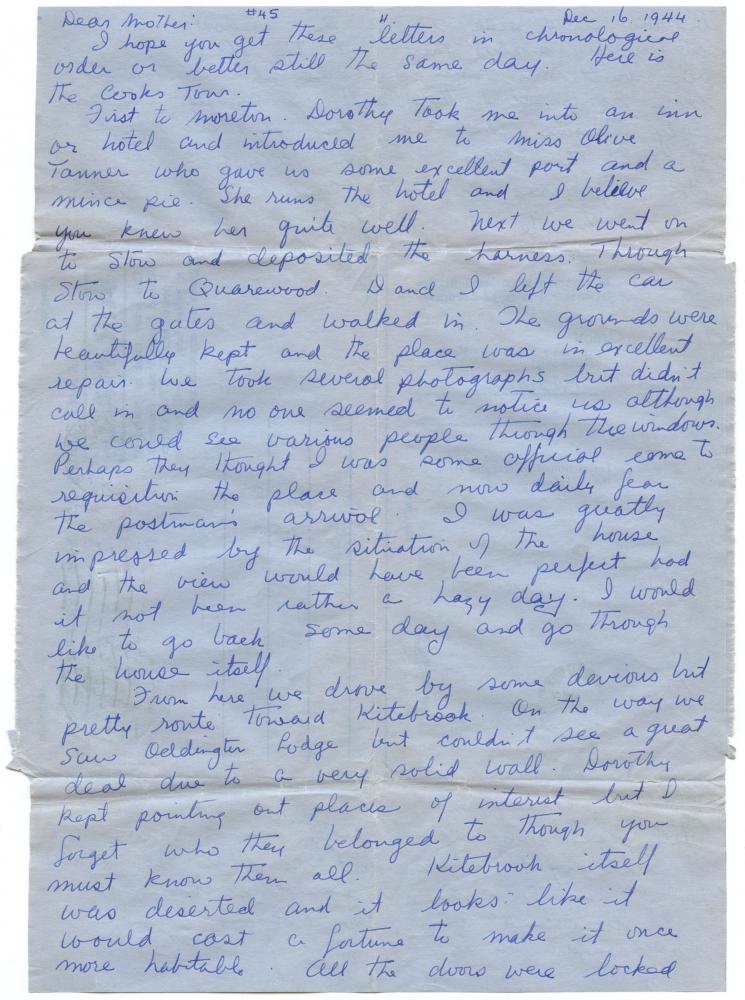 Dear Mother: #45 " Dec 16. 1944.
I hope you get these letters in chronological
order or better still the same day. Here is
the Cooks Tour.
First to Moreton. Dorothy took me into an inn
or hotel and introduced me to Miss Olive
Tanner who gave us some excellent port and a
mince pie. She runs the hotel and I believe
you knew her quite well. Next we went on
to Stow and deposited the harness. Through
Stow to Quarewood. D and I left the car
at the gates and walked in. The grounds were
beautifully kept and the place was in excellent
repair. We took several photographs but didn't
call in and no one seemed to notice us although
we could see various people through the windows.
Perhaps they thought I was some official come to
requisition the place and now daily fear
the postman's arrival. I was greatly
impressed by the situation of the house
and the view would have been perfect had
it not been rather a hazy day. I would
like to go back some day and go through
the house itself.
From here we drove by some devious but
pretty route toward Kitebrook. On the way we
saw Oddington Lodge but couldn't see a great
deal due to a very solid wall. Dorothy
kept pointing out places of interest but I
forget who they belonged to though you
must know them all. Kitebrook itself
was deserted and it looks like it
would cost a fortune to make it once
more habitable. All the doors were locked